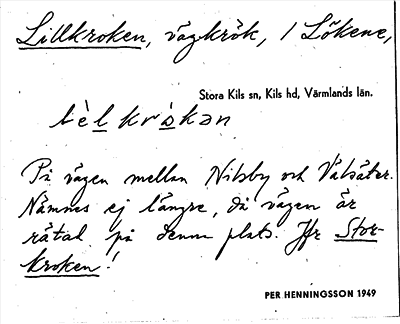 Lillkroken, vägkrök, i Lökene,
Stora Kils sn, Kils hd, Värmlands län.
På vägen mellan Nilsby och Välsäter.
Nämnes ej längre, då vägen är
rätad på denna plats. Jfr Stor-
kroken!
PER HENNINGSSON 1949